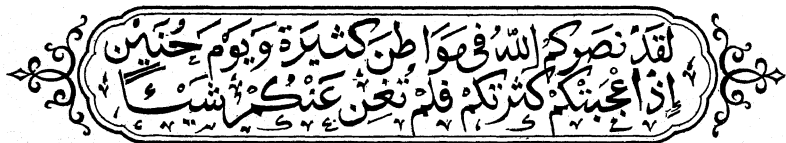 لَقَدْ نَصَرَكُمُ اللّٰهُ فِي مَوَاطِنَ كَثِيرَةٍ وَيَوْمَ حُنَيْنٍ
إِذْ أَعْجَبَتْكُمْ كَثْرَتُكُمْ فَلَمْ تُغْنِ عَنْكُمْ شَيْئًا